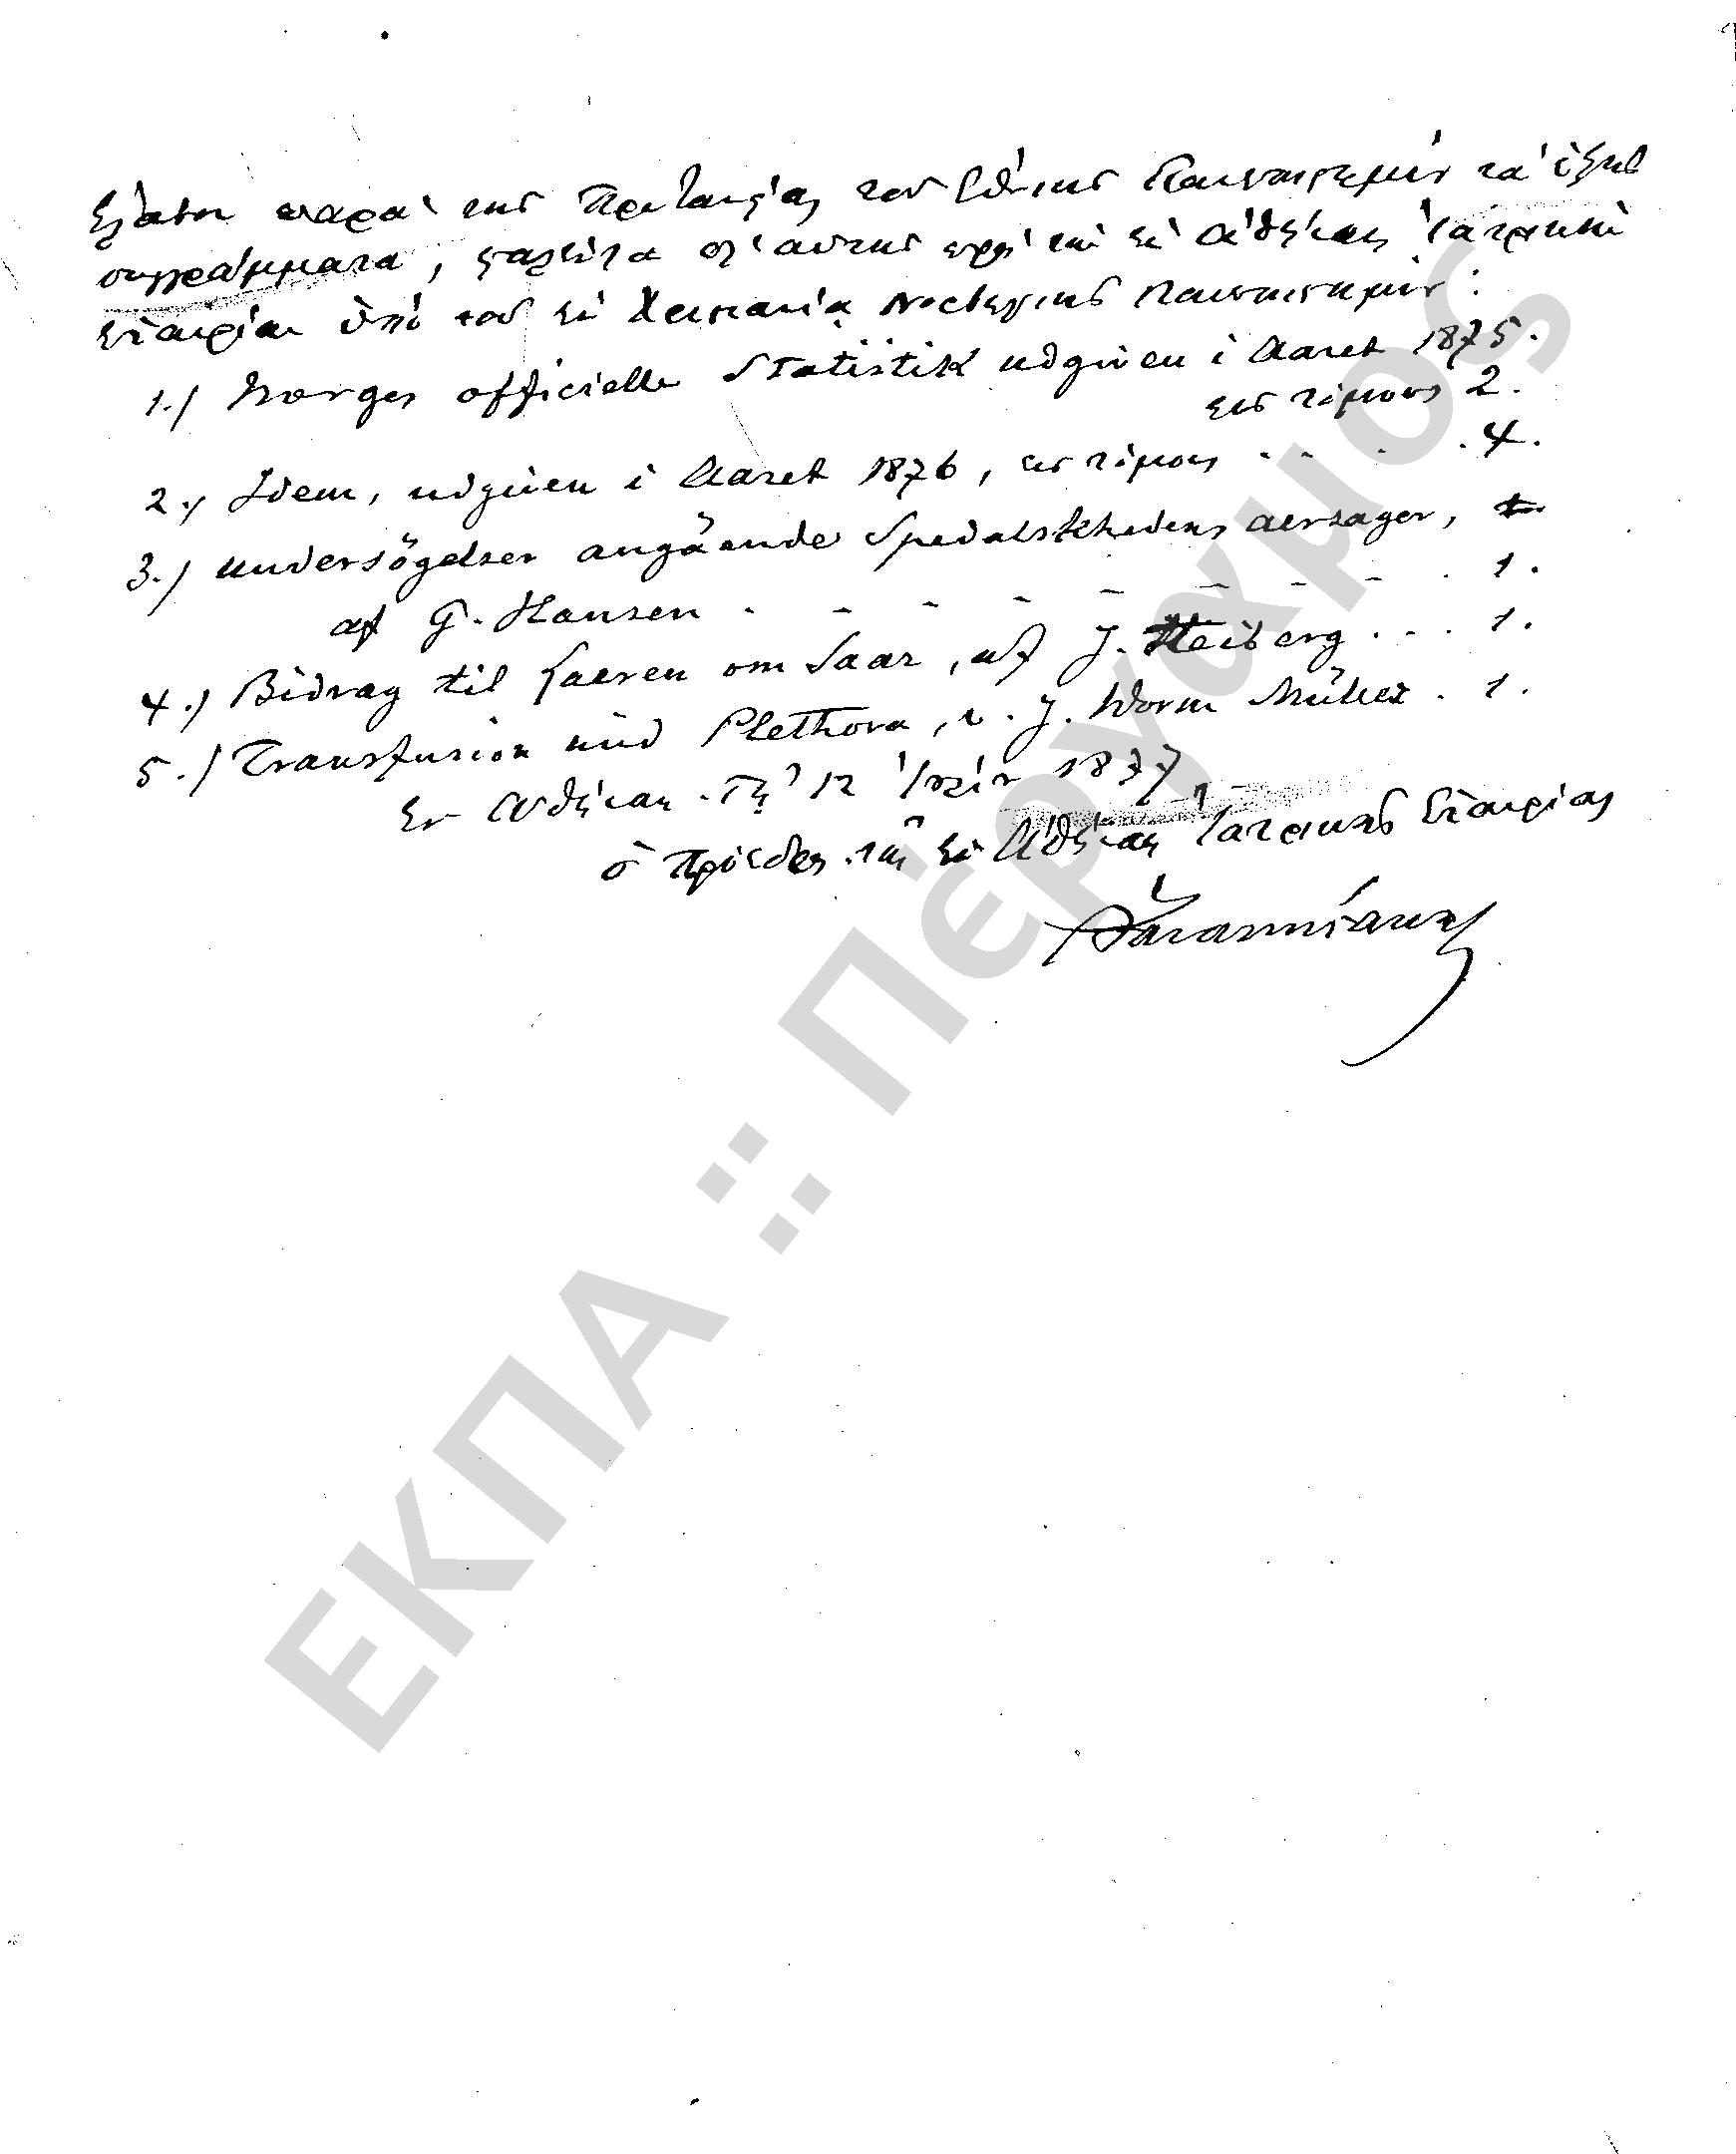 Ἔλαβον παρὰ τῆς Πρυτανείας τοῦ Ἐθνικοῦ Πανεπιστημίου τὰ ἑξῆς
συγγράμματα, σταλέντα δι' αὐτῆς πρὸς τὴν ἐν Ἀθήναις Ἰατρικὴν
Ἑταιρίαν ὑπὸ τοῦ ἐν Χριστιανίᾳ Νορβεγικοῦ Πανεπιστημίου:
1.) Norges officielle Statistik udgiven i Aaret 1875.
εἰς τόμους 2.
2.) Idem, udgiven i Aaret 1876, εἰς τόμους . . . . 4.
3.) Undersögelser angäende Spedalskhedens aersager,
af G. Hansen . - - - - - - - . 1.
4.) Bidrag til Laeren om Saar, af J. Heiberg . . . 1.
5.) Transfusion und Plethora, v. J. Worm Müller . 1.
Ἐν Ἀθήναις τῇ 12 1877
ὁ Πρόεδρος τῆς ἐν Ἀθήναις Ἰατρικῆς Ἑταιρίας
ΕΚΠΑ :: Πέργαμος